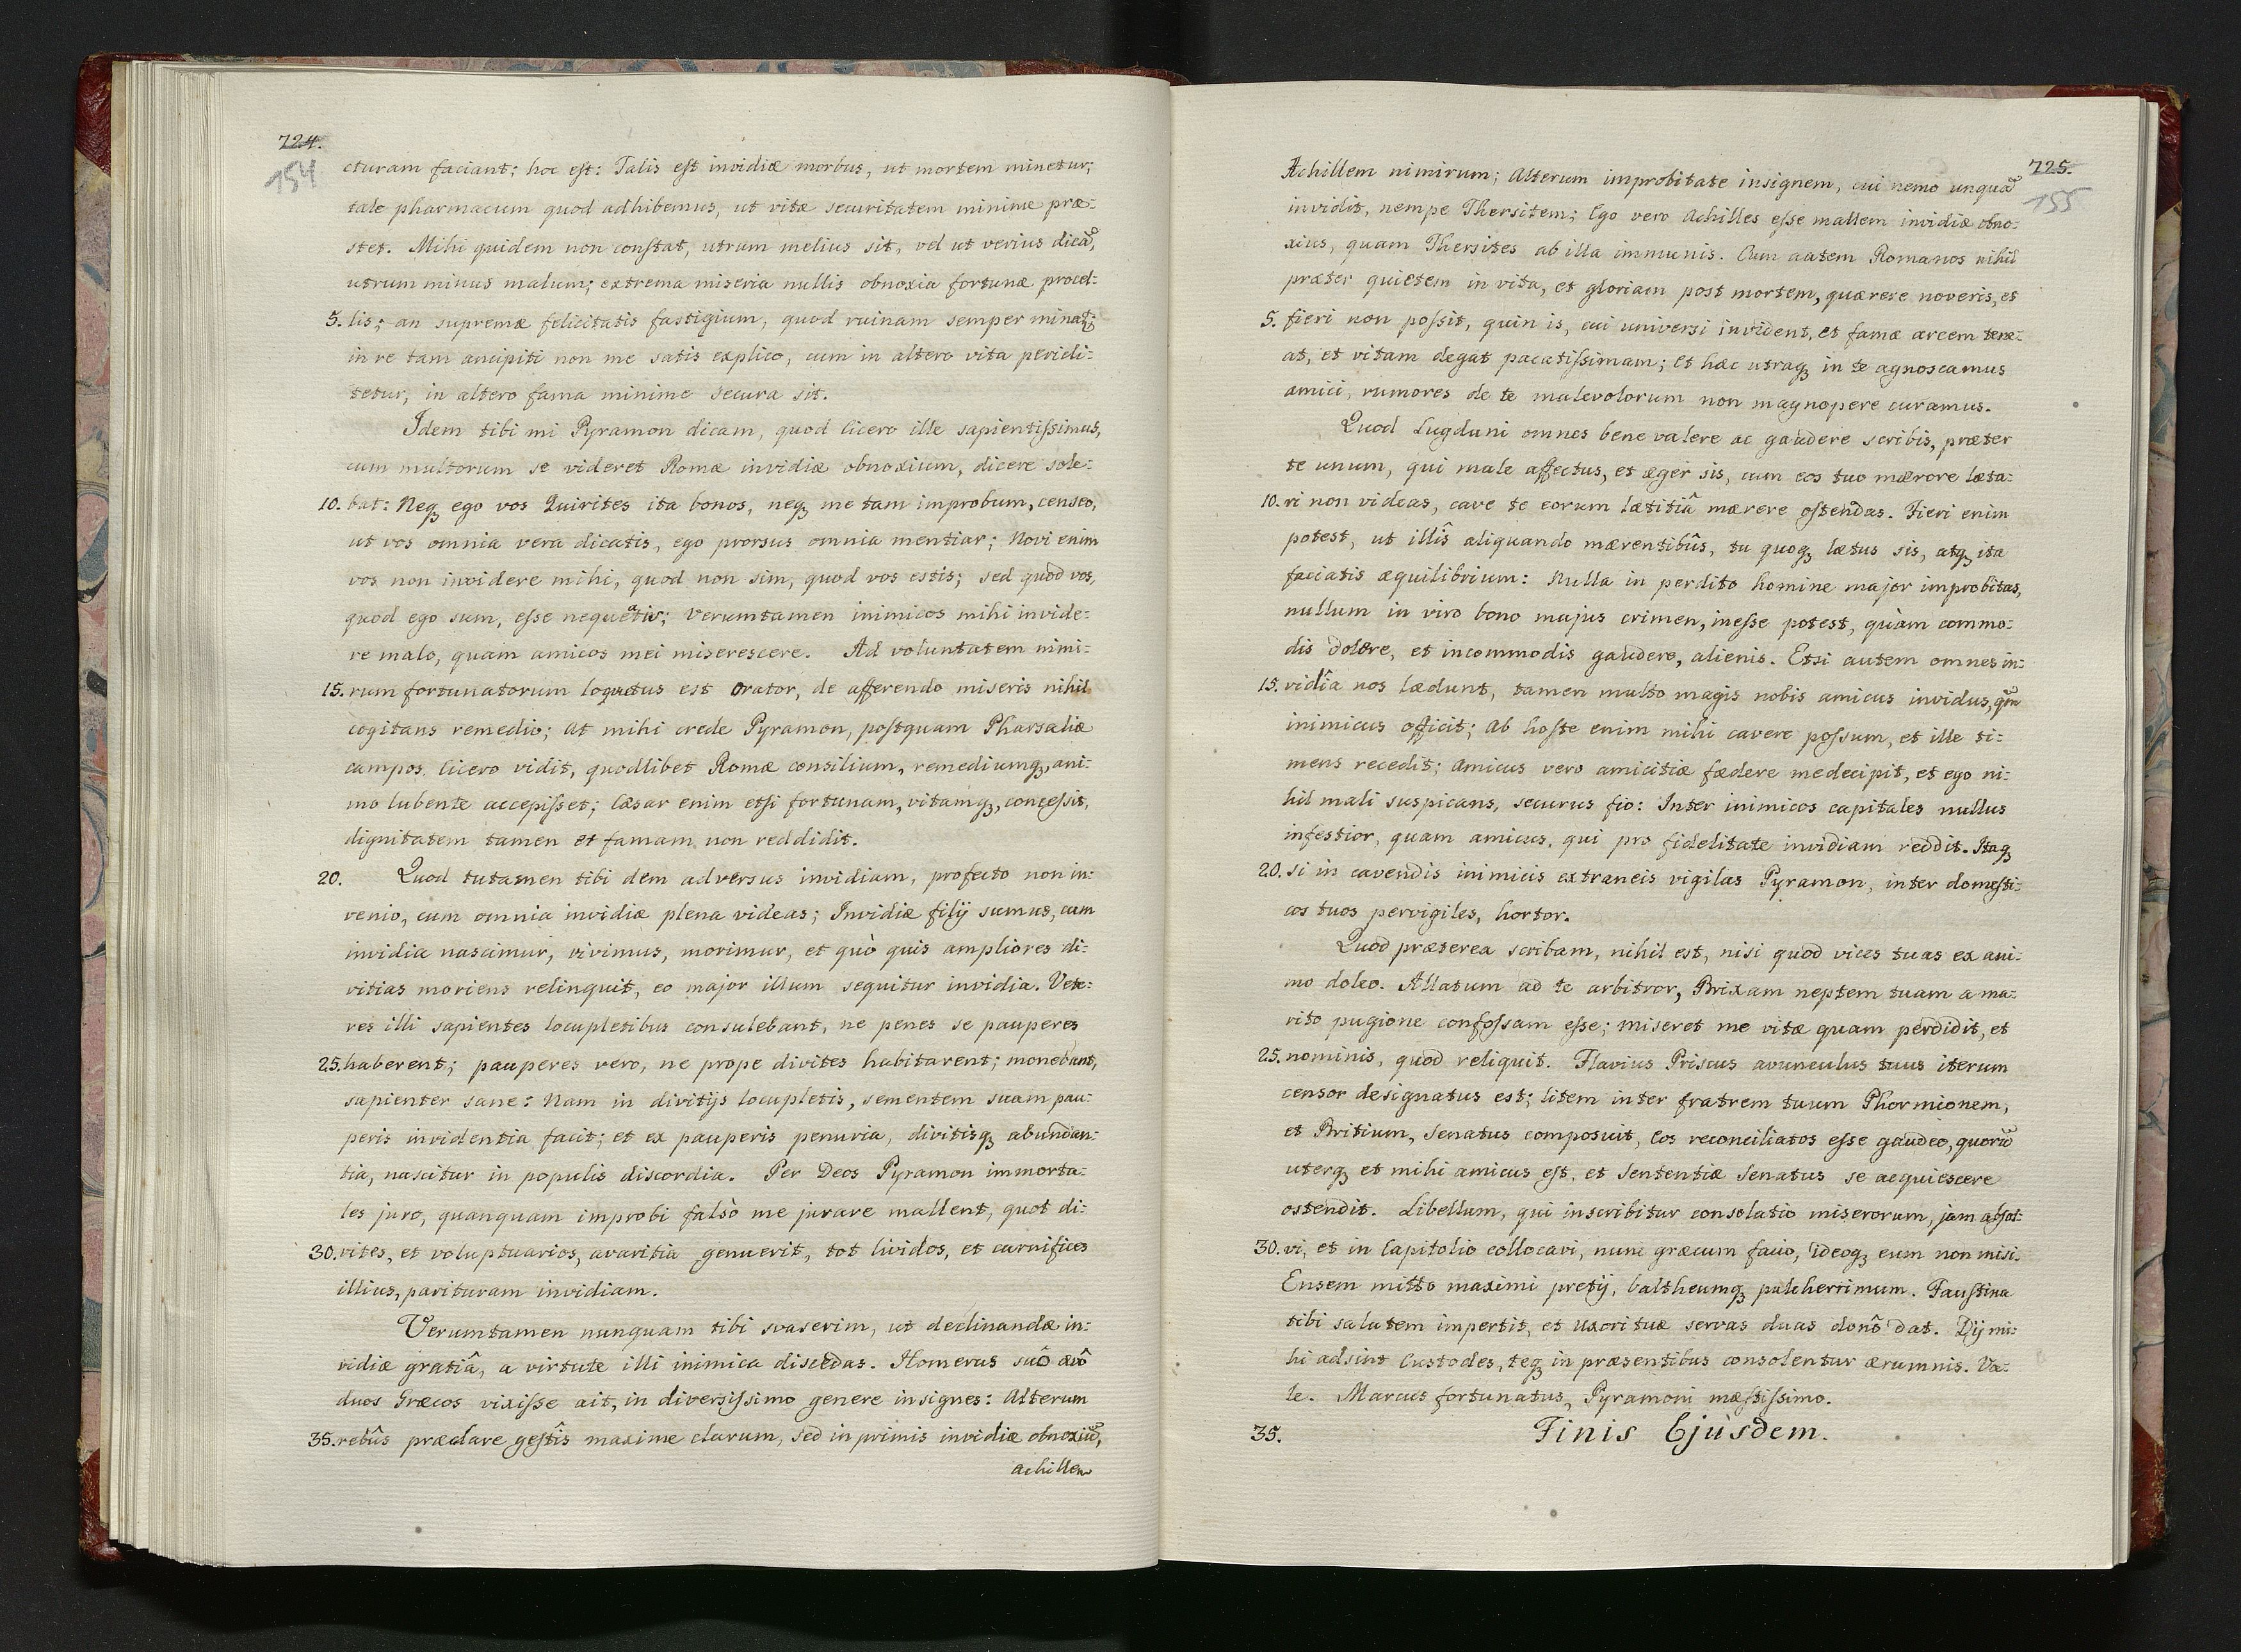 724.
154
cturam faciant; hoc est: Talis est invidiæ morbus, ut mortem minetur;
tale pharmacum quod adhibemus, ut vitæ securitatem minime præ:
stet. Mihi quidem non constat, utrum melius sit, vel ut verius dicã,
utrum minus malum; extrema miseria nullis obnoxia fortunæ procel:
5. lis; an supremæ felicitatis fastigium, quod ruinam semper minat.
in re tam ancipiti non me satis explico, cum in altero vita pericli:
tetur, in altero fama minime secura sit.
Idem tibi mi Pyramon dicam, quod Cicero ille sapientissimus,
cum multorum se videret Romæ invidiæ obnoxium, dicere sole:
10. bat: Neq ego vos Quirites ita bonos, neq me tam improbum, censeo,
ut vos omnia vera dicatis, ego prorsus omnia mentiar; Novi enim
vos non invidere mihi, quod non sim, quod vos estis; sed quod vos,
quod ego sum, esse nequeatis; Verumtamen inimicos mihi invide:
re malo, quam amicos mei miserescere. Ad voluntatem nimi:
15. rum fortunatorum loquutus est Orator, de afferendo miseris nihil
cogitans remedio; At mihi crede Pyramon, postquam Pharsaliæ
campos Cicero vidit, quodlibet Romæ consilium, remediumq, ani:
mo lubente accepisset; Cæsar enim etsi fortunam, vitamq, concessit,
dignitatem tamen et famam non reddidit.
20. Quod tutamen tibi dem adversus invidiam, profecto non in:
venio, cum omnia invidiæ plena videas; Invidiæ filij sumus, cum
invidia nascimur, vivimus, morimur, et quò quis ampliores di:
vitias moriens relinquit, eo major illum sequitur invidia. Vete:
res illi sapientes locupletibus consulebant, ne penes se pauperes
25. haberent; pauperes vero, ne prope divites habitarent; monebant,
sapienter sane: Nam in divitijs locupletis, sementem suam pau:
peris invidentia facit; et ex pauperis penuria, divitisq abundan:
tia, nascitur in populis discordia. Per Deos Pyramon immorta:
les juro, quanquam improbi falsò me jurare mallent, quot di:
30. vites, et voluptuarios, avaritia genuerit, tot lividos, et carnifices
illius, parituram invidiam.
Verumtamen nunquam tibi svaserim, ut declinandæ in:
vidiæ gratiâ, a virtute illi inimica discedas. Homerus suô ævô
duos Græcos vixisse ait, in diversissimo genere insignes: Alterum
35. rebûs præclare gestîs maxime clarum, sed in primis invidiæ obnoxiũ,
achillem
725.
155
Achillem nimirum; Alterum improbitate insignem, cui nemo unquã
invidit, nempe Thersitem; Ego vero Achilles esse mallem invidiæ obno:
xius, quam Thersites ab illa immunis. Cum autem Romanos nihil
præter quietem in vita, et gloriam post mortem, quærere noveris, et
5. fieri non possit, quin is, cui universi invident, et famæ arcem tene:
at, et vitam degat pacatissimam; et hæc utraq in te agnoscamus
amici, rumores de te malevolorum non magnopere curamus.
Quod Lugduni omnes bene valere ac gaudere scribis, præter
te unum, qui male affectus, et æger sis, cum eos tuo mærore læta:
10. ri non videas, cave te eorum lætitiâ mærere ostendas. Fieri enim
potest, ut illîs aliquando mærentibûs, tu quoq lætus sis, atq ita
faciatis æquilibrium: Nulla in perdito homine major improbitas,
nullum in viro bono majus crimen, inesse potest, quàm commo:
dis dolere, et incommodis gaudere, alienis. Etsi autem omnes in:
15. vidîa nos lædunt, tamen multo magis nobis amicus invidus, qm̃
inimicus officit; Ab hoste enim mihi cavere possum, et ille ti:
mens recedit; Amicus vero amicitiæ fædere me decipit, et ego ni:
hil mali suspicans, securus fio: Inter inimicos capitales nullus
infestior, quam amicus, qui pro fidelitate invidiam reddit. Itaq
20. si in cavendis inimicis extraneis vigilas Pyramon, inter domesti:
cos tuos pervigiles, hortor.
Quod præterea scribam, nihil est, nisi quod vices tuas ex ani:
mo doleo. Allatum ad te arbitror, Brixam neptem tuam a ma:
rito pugione confossam esse; miseret me vitæ quam perdidit, et
25. nominis, quod reliquit. Flavius Priscus avunculus tuus iterum
censor designatus est; litem inter fratrem tuum Phormionem,
et Britium, Senatus composuit, Eos reconciliatos esse gaudeo, quorũ
uterq et mihi amicus est, et Sententiæ Senatus se acquiescere
ostendit. Libellum, qui inscribitur consolatio miserorum, jam absol:
30. vi, et in Capitolio collocavi, nunc græcum facio, ideoq eum non misi.
Ensem mitto maximi pretij, baltheumq pulcherrimum. Faustina
tibi salutem impertit, et uxori tuæ servas duas donô dat. Dij mi:
hi adsint Custodes, teq in præsentibus consolentur ærumnis. Va:
le. Marcus fortunatus, Pyramoni mæstissimo.
35. Finis Ejusdem.